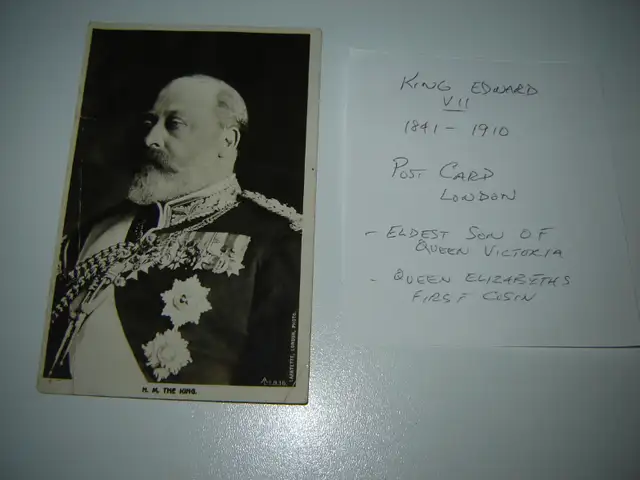 H. M. THE KING.
LAFAYETTE, LONDON, PHOTO.
KING EDWARD
VII
1841 - 1910
POST CARD
LONDON
- ELDEST SON OF
QUEEN VICTORIA
- QUEEN ELIZABETHS
FIRST COSIN